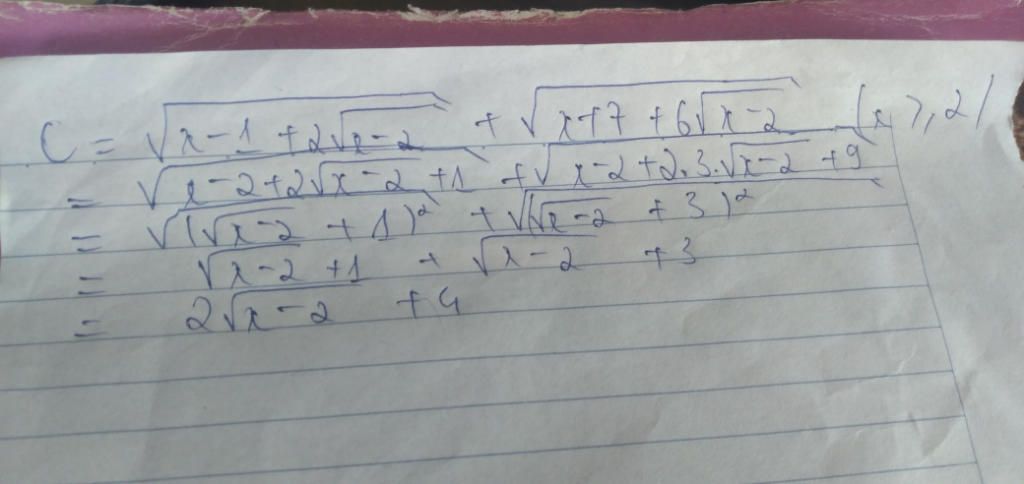 C = √(x-1+2√(x-2)) + √(x+7+6√(x-2)) (x ≥ 2)
= √(x-2+2√(x-2)+1) + √(x-2+2.3.√(x-2)+9)
= √((√(x-2)+1)²) + √((√(x-2)+3)²)
= √(x-2)+1 + √(x-2) +3
= 2√(x-2) +4